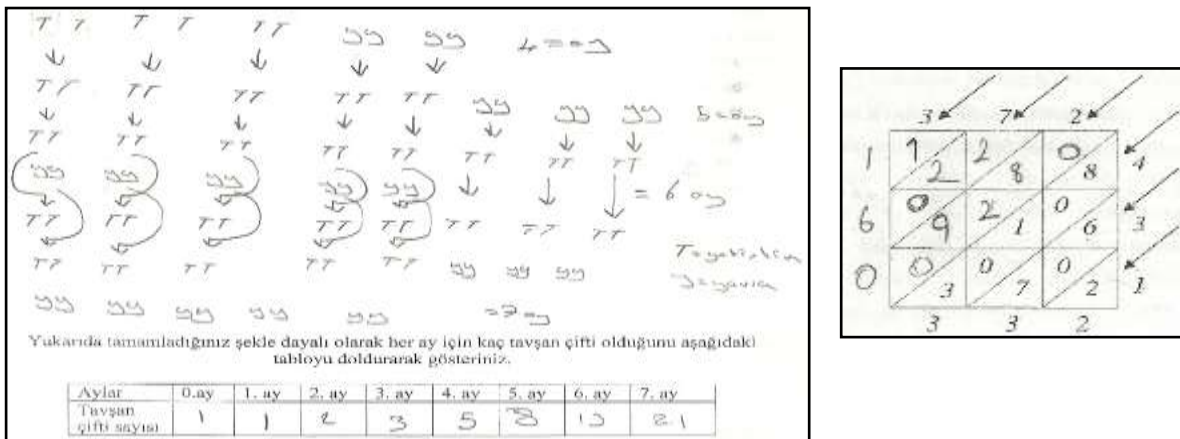 T T T T TT yy yy 4=ay
TT TT TT TT TT yy yy yy 5=ay
TT TT TT TT TT TT TT TT
yy yy yy yy yy = 6 ay
TT TT TT TT TT TT TT TT
TT TT TT TT TT yy yy yy
T=yetişkin
y=yavru
yy yy yy yy yy =7 ay
Yukarıda tamamladığınız şekle dayalı olarak her ay için kaç tavşan çifti olduğunu aşağıdaki
tabloyu doldurarak gösteriniz.
Aylar 0.ay 1. ay 2. ay 3. ay 4. ay 5. ay 6. ay 7. ay
Tavşan
çifti sayısı 1 1 2 3 5 8 13 21
3 7 2
1 1 2 2 8 0 8 4
6 0 9 2 1 0 6 3
0 0 3 0 7 0 2 1
3 3 2